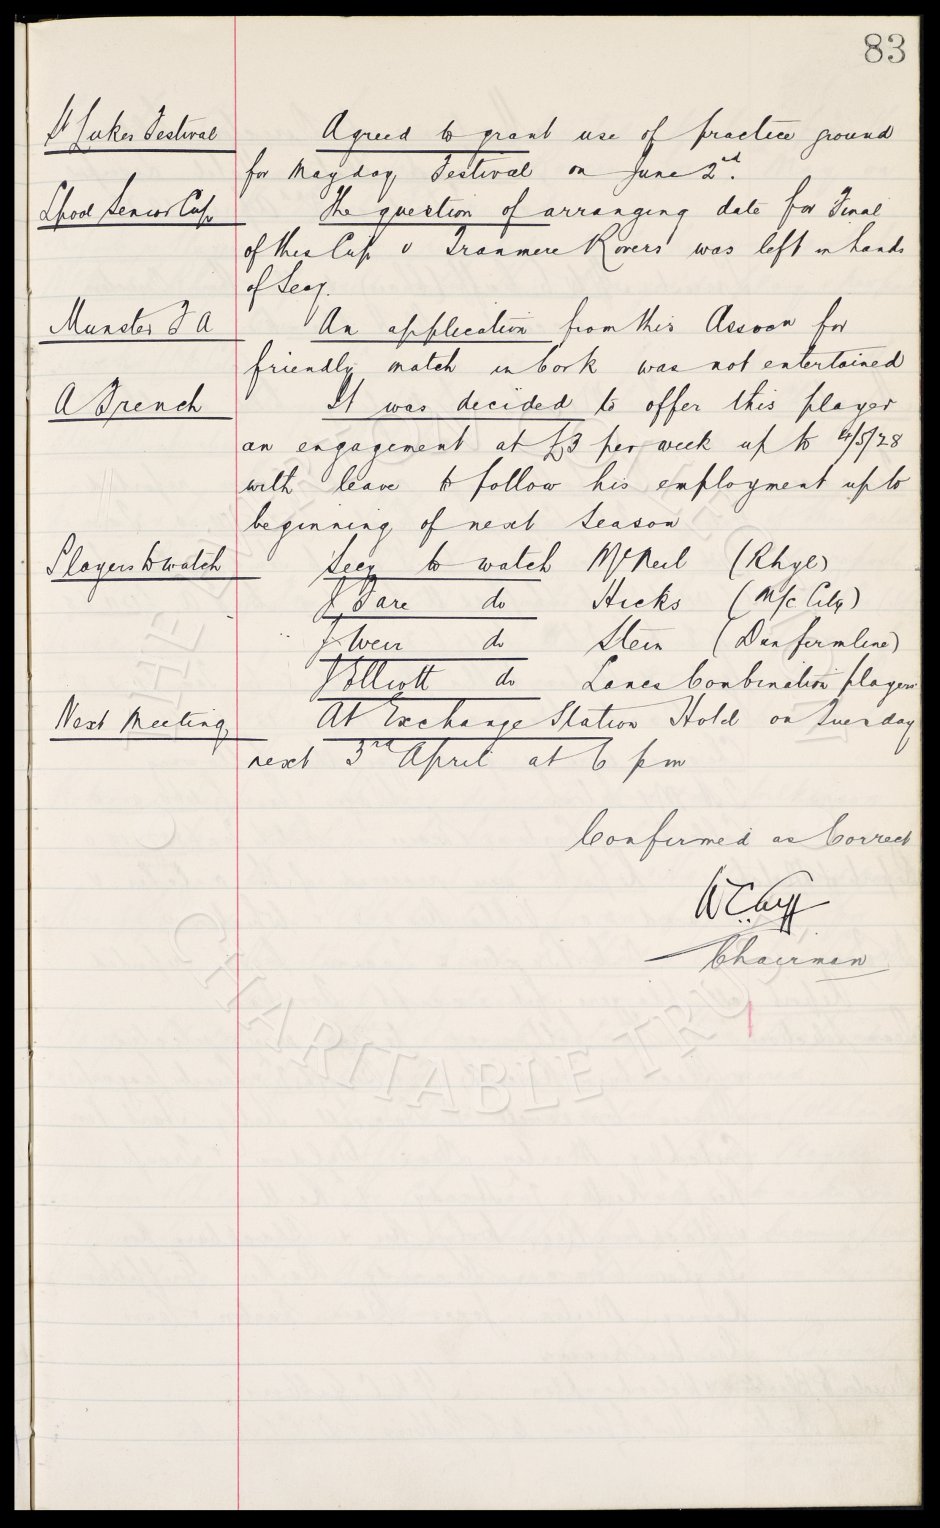 83
St Lukes Festival Agreed to grant use of practice ground
for Mayday Festival on June 2nd.
Lpool Senior Cup The question of arranging date for Final
of this Cup v Tranmere Rovers was left in hands
of Secy.
Munster F A An application from this Assocn for
friendly match in Cork was not entertained
A French It was decided to offer this player
an engagement at £3 per week up to 4/5/28
with leave to follow his employment up to
beginning of next season
Players to watch Secy to watch McNeil (Rhyl)
J Fare do Hicks (M/c City)
J Weir do Stein (Dunfermline)
J Elliott do Lancs Combination players
Next Meeting At Exchange Station Hotel on Tuesday
next 3rd April at 6 pm
Confirmed as Correct
W C Cuff
Chairman
THE EVERTON COLLECTION
CHARITABLE TRUST